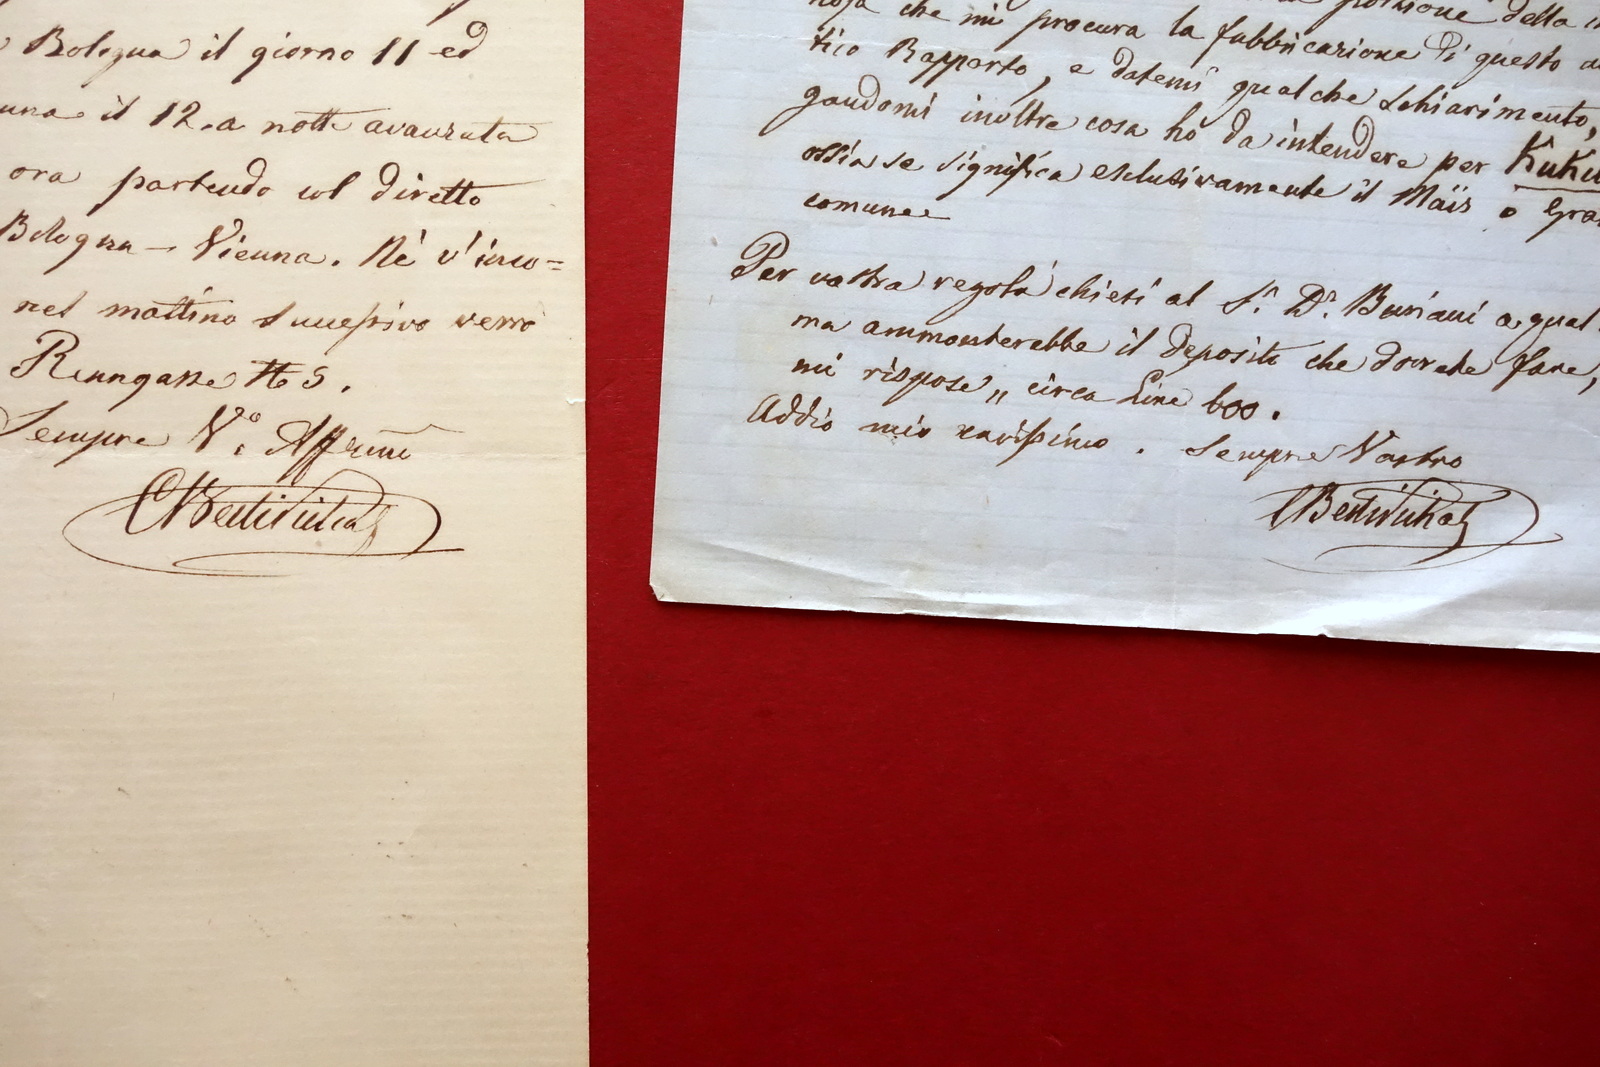 Bologna il giorno 11 ed
il 12. a notte avanzata
ora partendo col diretto
Bologna – Vienna. Nè v'inco=
nel mattino successivo verrò
Renngasse № 5.
Sempre V.º Affmo
che mi procura la fabbricazione di questo
tico Rapporto, e datemi qualche schiarimento,
gandomi inoltre cosa ho da intendere per Kuku
ossia se significa esclusivamente il Maïs o Gra
comune
Per vostra regola chiesi al Sr. Dr. Buriani a qual
ma ammonterebbe il deposito che dovrete fare,
mi rispose „ circa Lire 600.
Addio mio carissimo. Sempre Vostro